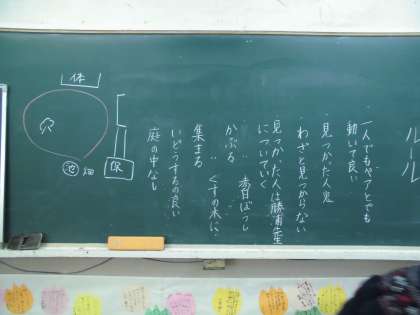 ルール
・一人でもペアとでも
動いて良い
・見つかった人鬼
・わざと見つからない
見つかった人は勝浦先生
についていく
かぶる
青ばっし
集まる
くすの木に
いどうするの良い
庭の中なし
体
池
畑
保